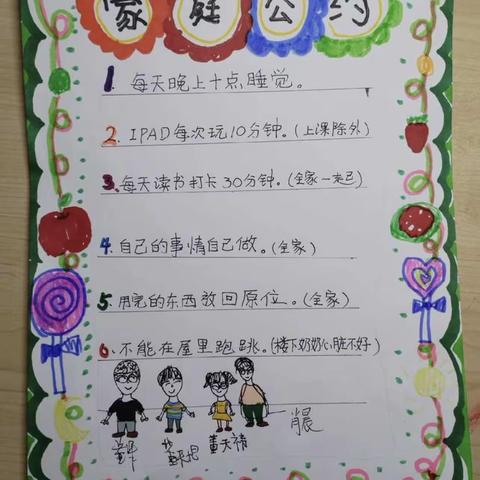 家庭公约
1. 每天晚上十点睡觉。
2. IPAD每次玩10分钟。(上课除外)
3. 每天读书打卡30分钟。(全家一起)
4. 自己的事情自己做。(全家)
5. 用完的东西放回原位。(全家)
6. 不能在屋里跑跳。(楼下奶奶心脏不好)
董天禧